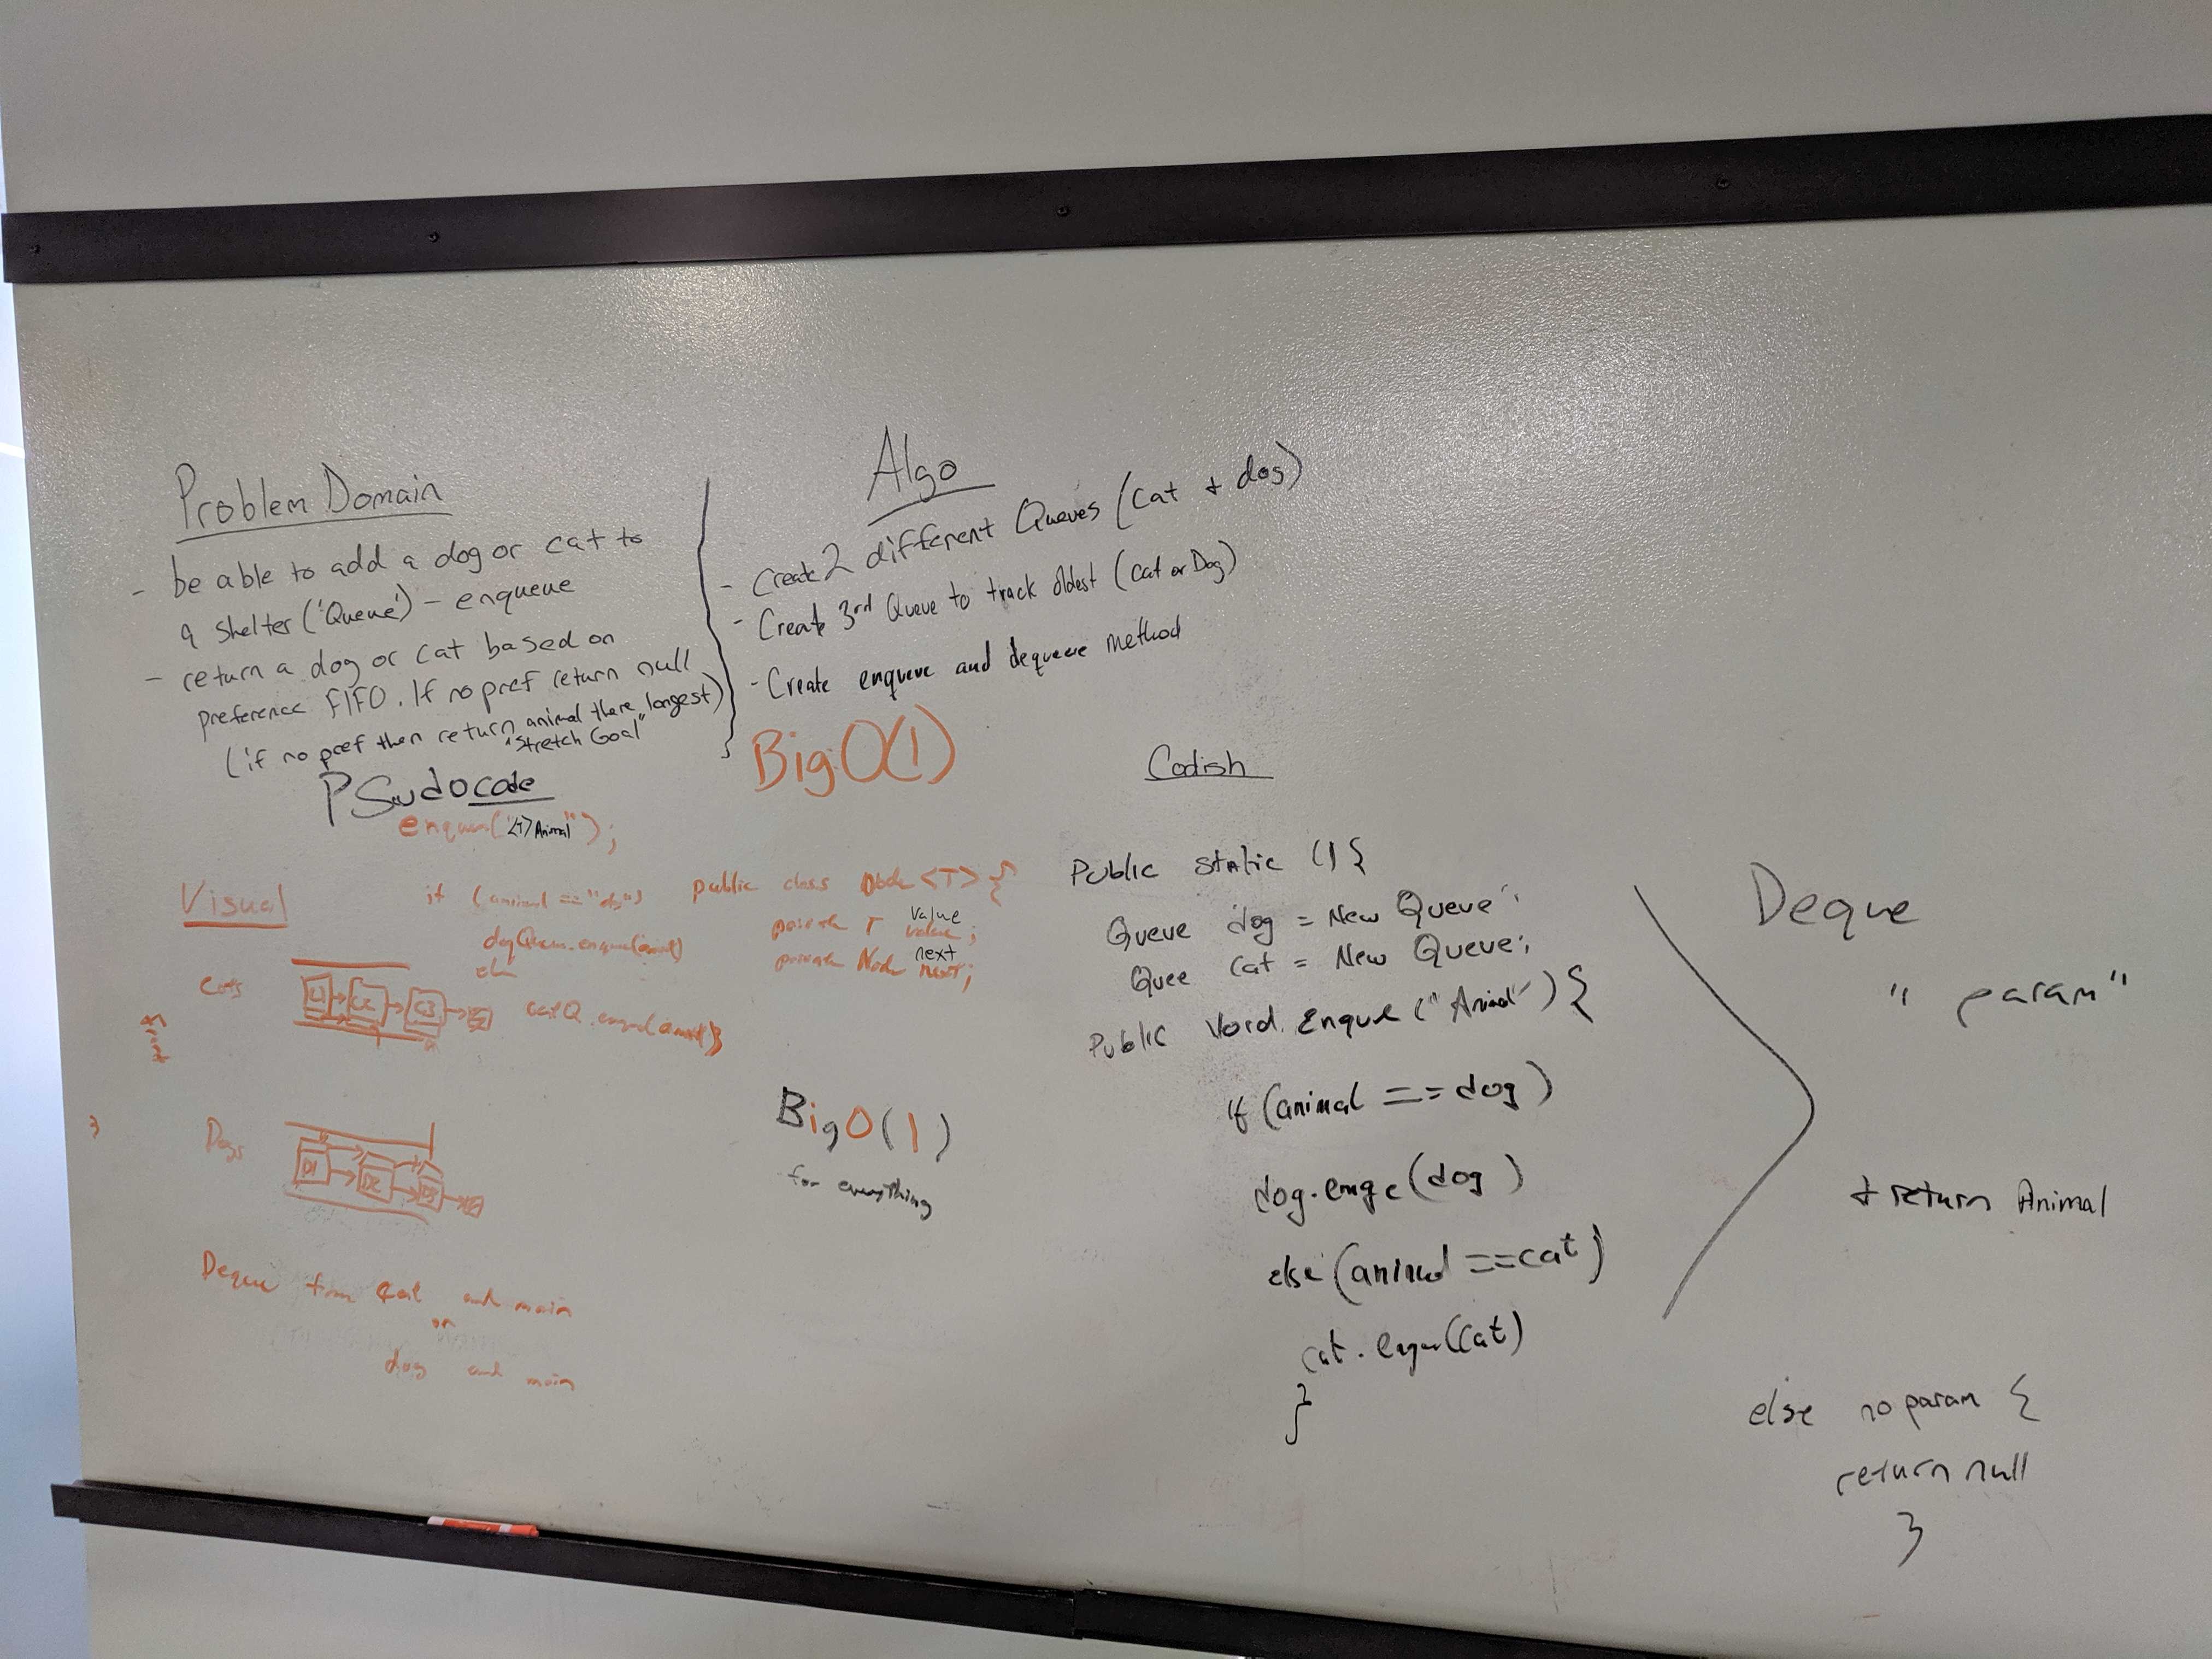 Problem Domain
- be able to add a dog or cat to
a shelter ('Queue') - enqueue
- return a dog or cat based on
preference FIFO. If no pref return null
(if no pref then return animal there longest)
"Stretch Goal"
Algo
- Create 2 different Queues (cat + dog)
- Create 3rd Queue to track oldest (cat or Dog)
- Create enqueue and dequeue method
Big O(1)
PSudocode
enqueue("<T>Animal");
if (animal == "dog")
dogQueue.enqueue(animal)
else
catQ.enqueue(animal)}
public class Node<T> {
private T value value;
private Node next next;
Visual
Cats
C1 C2 C3
Dogs
D1 D2 D3
Deque from Cat and main
or
dog and main
Big O(1)
for everything
Codish
Public static () {
Queue dog = New Queue;
Quee cat = New Queue;
Public Void. Enque ("Animal") {
if (animal == dog)
dog.enqe(dog)
else (animal == cat)
cat.enque(cat)
}
Deque
" param"
+ return Animal
else no param {
return null
}